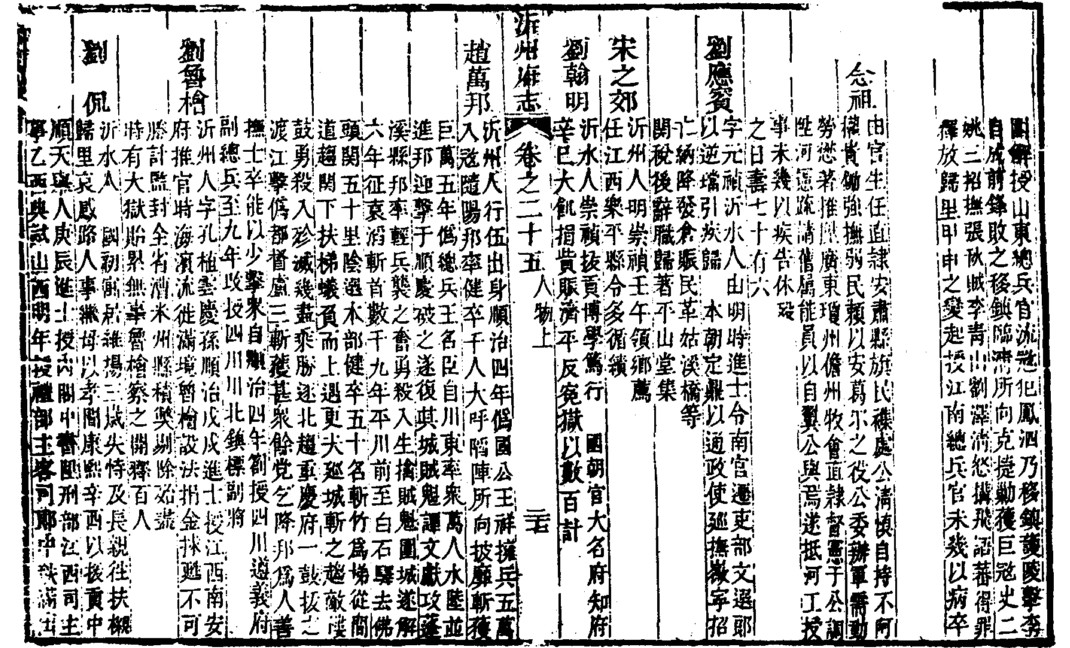 圍解授山東總兵官流寇犯鳳泗乃移鎮護陵擊李
自成前鋒敗之移鎮臨淸所向克捷勦獲巨寇史二
姚三招撫張秋賊李靑山劉澤淸怒搆飛語蕃得罪
釋放歸里甲申之變起授江南總兵官未幾以病卒
念祖
由官生任直隷安肅縣旗民襍處公淸愼自持不阿
權貴鋤強撫弱民賴以安葛尓之役公委辦軍需勤
勞懋著推陞廣東瓊州儋州牧會直隷督憲于公調
性河復疏請舊屬能員以自翼公與焉遂抵河工授
事未幾以疾告休歿
之日壽七十有六
劉應賓
字元禎沂水人由明時進士令南宮遷吏部文選郎
以逆璫引疾歸 本朝定鼎以通政使廵撫徽寧招
亡納降發倉賑民革姑溪橋等
關稅後辭職歸著平山堂集
宋之郊
沂州人明崇禎壬午領鄉薦
任江西樂平縣令多循績
劉翰明
沂水人崇禎拔貢博學篤行 國朝官大名府知府
辛巳大飢捐貲賑濟平反寃獄以數百計
沂州府志 卷之二十五 人物上 三七
趙萬邦
沂州人行伍出身順治四年僞國公王祥擁兵五萬
入寇隨陽邦率健卒千人大呼陷陣所向披靡斬獲
巨萬五年僞總兵王名臣自川東率衆萬人水陸並
進邦迎擊于順慶破之遂復其城賊魁譚文獻攻蓬
溪縣邦率輕兵襲之奮勇殺入生擒賊魁圍城遂解
六年征哀滔斬首數千九年平川前至白石驛去佛
頭關五十里陰選本部健卒五十名斬竹爲梯從間
道趨関下扶梯蟻負而上遇更夫廵城斬之趨敵樓
鼓勇殺入殄滅幾盡乘勝逐北趨重慶府一鼓拔之
渡江擊僞都督盧三斬獲甚衆餘党乞降邦爲人善
撫士卒能以少擊衆自順治四年劄授四川遵義府
副總兵至九年改授四川川北鎮標副將
劉魯檜
沂州人字孔植雲慶孫順治戊戌進士授江西南安
府推官時海濵流徙滿境魯檜設法捐金抹甦不可
勝計監封全省漕米州縣積獘剔除殆盡
時有大獄貽累無辜魯檜察之開釋百人
劉侃
沂水人 國初寓居維揚三歲失恃及長親往扶櫬
歸里哀感路人事繼母以孝聞康熙辛酉以拔貢中
順天舉人庚辰進士授内閣中書陞刑部江西司主
事乙酉典試山西明年授禮部主客司郎中